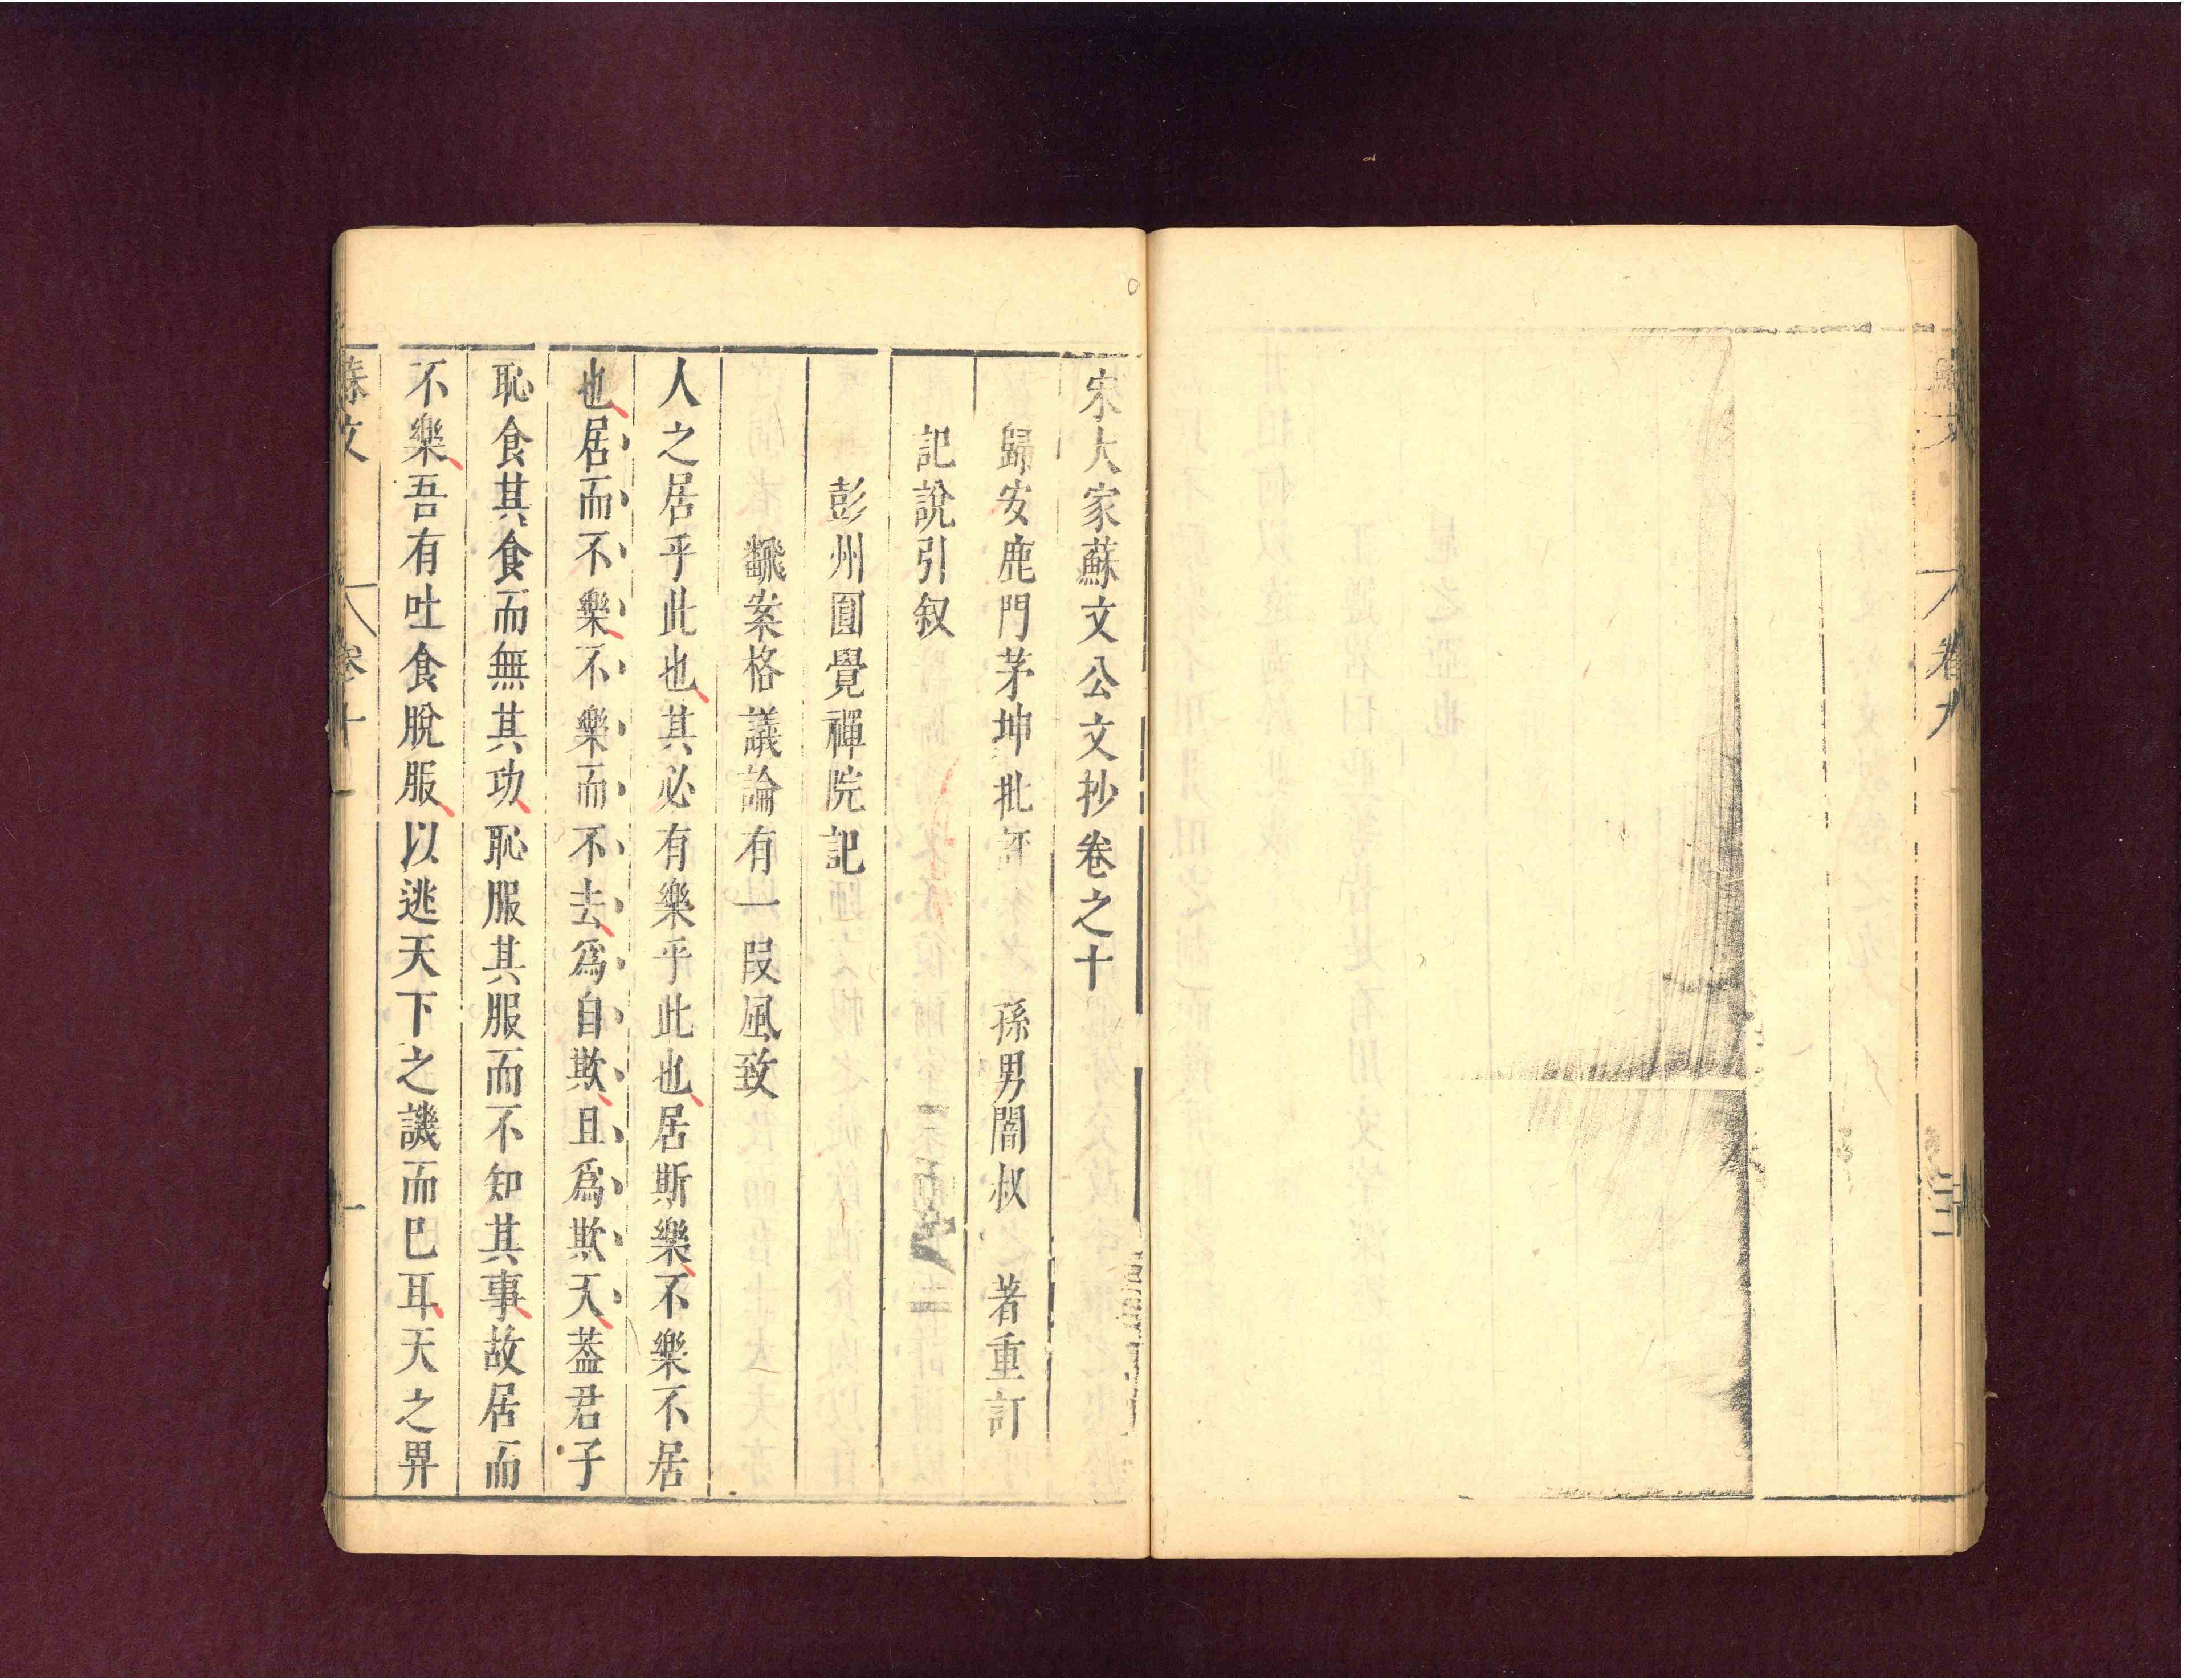 蘇文 卷九 三十二
宋大家蘇文公文抄卷之十
歸安鹿門茅坤批評 孫男闇叔 著重訂
記說引叙
彭州圓覺禪院記
飜案格議論有一段風致
人之居乎此也其必有樂乎此也居斯樂不樂不居
也居而不樂不樂而不去爲自欺且爲欺天葢君子
恥食其食而無其功恥服其服而不知其事故居而
不樂吾有吐食脫服以逃天下之譏而巳耳天之畀
蘇文 卷十 一